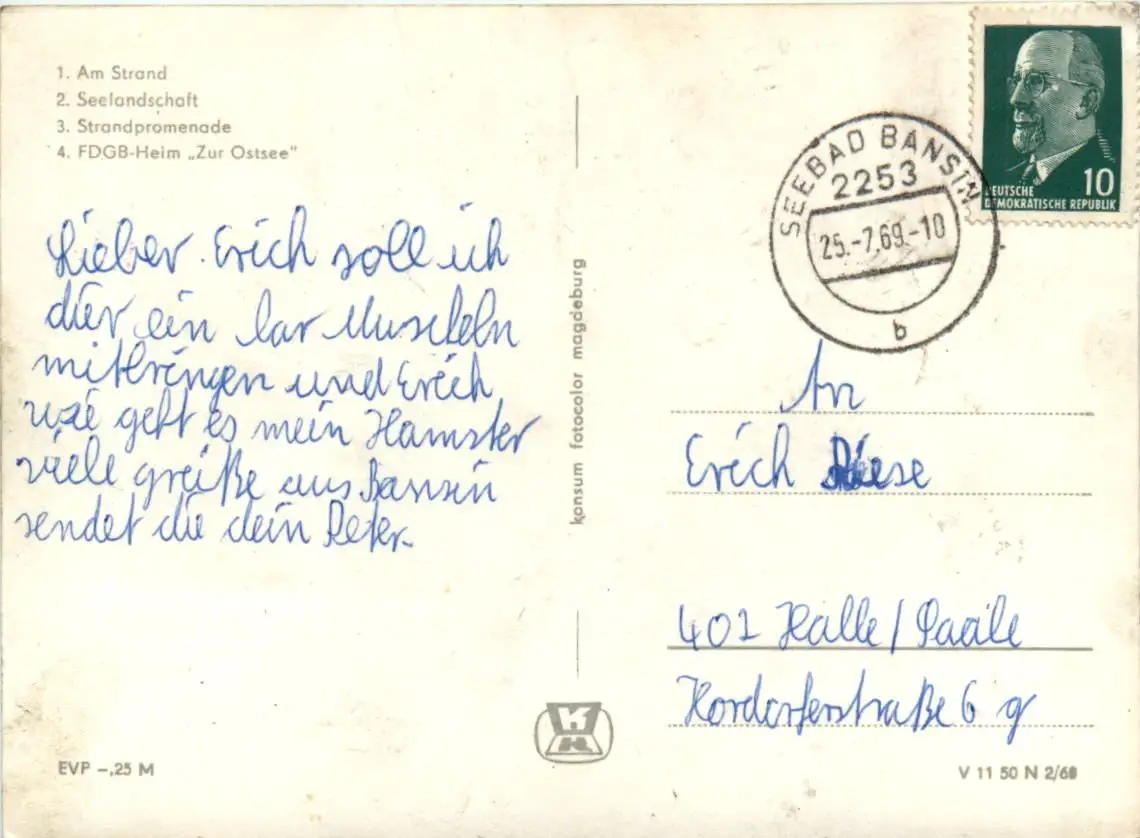 1. Am Strand
2. Seelandschaft
3. Strandpromenade
4. FDGB-Heim „Zur Ostsee"
Lieber Erich soll ich
dir ein Muscheln
mitbringen und Erich
wie geht es mein Hamster
viele greiße aus Bansin
sendet die dein Peter.
konsum fotocolor magdeburg
DEUTSCHE
DEMOKRATISCHE REPUBLIK
10
SEEBAD BANSIN
2253
25.-7.69.-10
b
An
Erich
402 Halle / Saale
6 g
EVP -,25 M
V 11 50 N 2/68